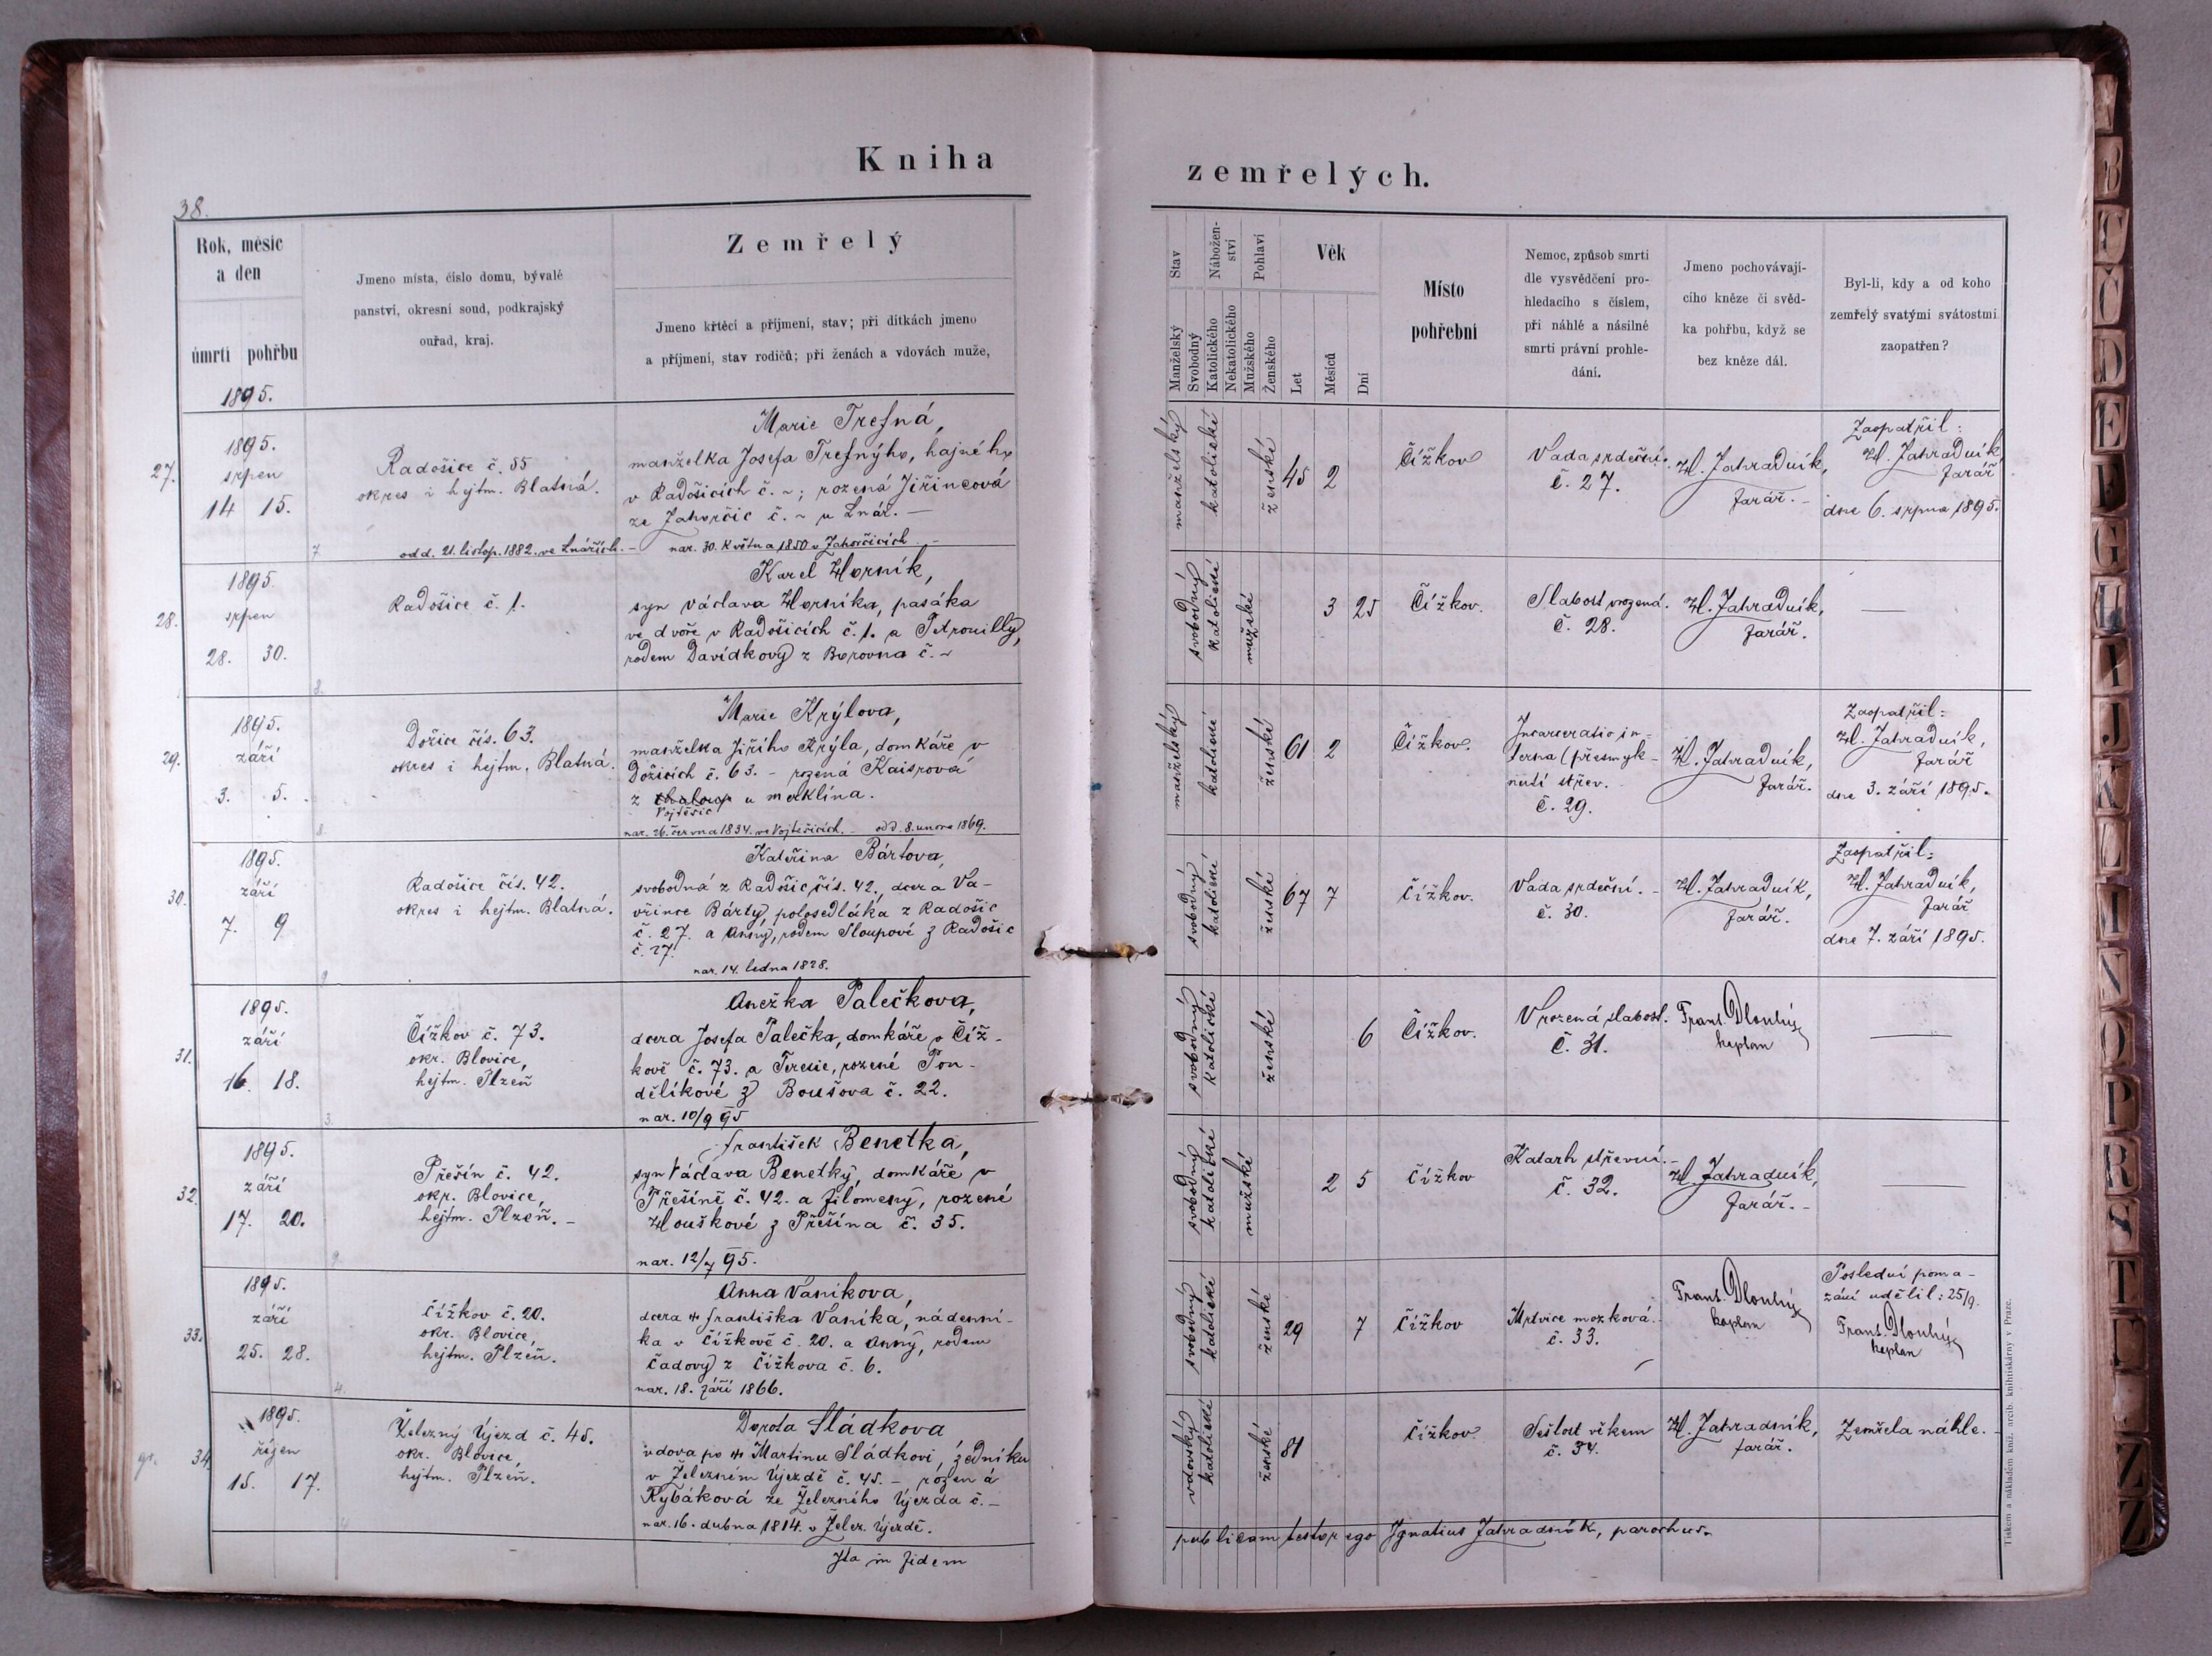 Kniha
zemřelých.
38.
Rok, měsíc
a den
úmrtí pohřbu
Jmeno místa, číslo domu, bývalé
panství, okresní soud, podkrajský
ouřad, kraj.
Zemřelý
Jmeno křtěcí a příjmení, stav; při dítkách jmeno
a příjmení, stav rodičů; při ženách a vdovách muže,
Stav
Manželský
Svobodný
Nábožen-
ství
Katolického
Nekatolického
Pohlaví
Mužského
Ženského
Věk
Let
Měsíců
Dní
Místo
pohřební
Nemoc, způsob smrti
dle vysvědčení pro-
hledacího s číslem,
při náhlé a násilné
smrti právní prohle-
dání.
Jmeno pochovávají-
cího kněze či svěd-
ka pohřbu, když se
bez kněze dál.
Byl-li, kdy a od koho
zemřelý svatými svátostmi
zaopatřen?
1895.
27.
1895.
srpen
14 15.
Radošice č. 55
okres i hejtm. Blatná.
Marie Trefná,
manželka Josefa Trefnýho, hajného
v Radošicích č. ~; rozená Jiřincová
ze Zahorčic č. ~ u Lnář. —
7
odd. 21. listop. 1882. ve Lnářích. – nar. 30. Května 1850 v Zahorčicích –
manželský
katolické
ženské
45 2
Čížkov
Vada srdeční.
č. 27.
H. Zahradník,
farář. –
Zaopatřil:
H. Zahradník,
farář
dne 6. srpna 1895.
28.
1895.
srpen
28. 30.
Radošice č. 1.
Karel Horník,
syn Václava Horníka, pasáka
ve dvoře v Radošicích č. 1. a Petronilly,
rodem Davídkový z Borovna č. ~
8.
svobodný
katolické
mužské
3 25
Čížkov.
Slabost vrozená.
č. 28.
H. Zahradník,
farář.
—
29.
1895.
září
3. 5.
Dožice čís. 63.
okres i hejtm. Blatná.
Marie Krýlova,
manželka Jiřího Krýla, domkáře v
Dožicích č. 63. – rozená Kaisrová
z chaloup u merklína.
Vojtěšic
nar. 26. června 1834. ve Vojtěšicích. – odd. 8. února 1869.
8.
manželský
katolické
ženské
61 2
Čížkov.
Incarceratio in-
terna (přesmyk-
nutí střev. –
č. 29.
H. Zahradník,
farář.
Zaopatřil:
H. Zahradník,
farář
dne 3. září 1895.
30.
1895.
září
7. 9
Radošice čís. 42.
okres i hejtm. Blatná.
Kateřina Bártova,
svobodná z Radošic, čís. 42., dcera Va-
vřince Bárty, polosedláka z Radošic
č. 27. a Anny, rodem Sloupové z Radošic
č. 27.
nar. 14. ledna 1828.
9
svobodný
katolické
ženské
67 7
Čížkov.
Vada srdeční. –
č. 30.
H. Zahradník,
farář.
Zaopatřil:
H. Zahradník,
farář
dne 7. září 1895.
31.
1895.
září
16. 18.
Čížkov č. 73.
okr. Blovice,
hejtm. Plzeň
Anežka Palečkova,
dcera Josefa Palečka, domkáře v Číž-
kově č. 73. a Terezie, rozené Pon-
dělíkové z Boušova č. 22.
nar. 10/9 95
3.
svobodný
katolické
ženské
6
Čížkov.
Vrozená slabost.
č. 31.
Frant. Dlouhý
kaplan
—
32.
1895.
září
17. 20.
Přešín č. 42.
okr. Blovice,
hejtm. Plzeň. –
František Benetka,
syn Václava Benetký, domkáře v
Přešíně č. 42. a Filomeny, rozené
Houškové z Přešína č. 35.
nar. 12/7 95.
9.
svobodný
katolické
mužské
2 5
Čížkov
Katarh střevní. –
č. 32.
H. Zahradník,
farář. –
—
33.
1895.
září
25. 28.
Čížkov č. 20.
okr. Blovice,
hejtm. Plzeň.
Anna Vaníkova,
dcera + Františka Vaníka, nádenní-
ka v Čížkově č. 20. a Anny, rodem
Čadový z Čížkova č. 6.
nar. 18. září 1866.
4.
svobodný
katolické
ženské
29 7
Čížkov
Mrtvice mozková.
č. 33.
Frant. Dlouhý
kaplan
Poslední poma-
zání udělil: 25/9.
Frant. Dlouhý
kaplan
34.
1895.
říjen
15. 17.
Železný Újezd č. 45.
okr. Blovice,
hejtm. Plzeň.
Dorota Sládkova
vdova po + Martinu Sládkovi, zedníku
v Železném Újezdě č. 45. – rozená
Rybáková ze Železného Újezda č. –
nar. 16. dubna 1814. v Želez. Újezdě.
vdovský
katolické
ženské
81
Čížkov
Sešlost věkem
č. 34.
H. Zahradník,
farář.
Zemřela náhle. –
Ita in fidem
publicam testor ego Ignatius Zahradník, parochus.
Tiskem a nákladem kníž. arcib. knihtiskárny v Praze.
B
T
Č
D
E
F
G
H
I
J
K
L
M
N
O
P
R
S
T
U
Z
Z